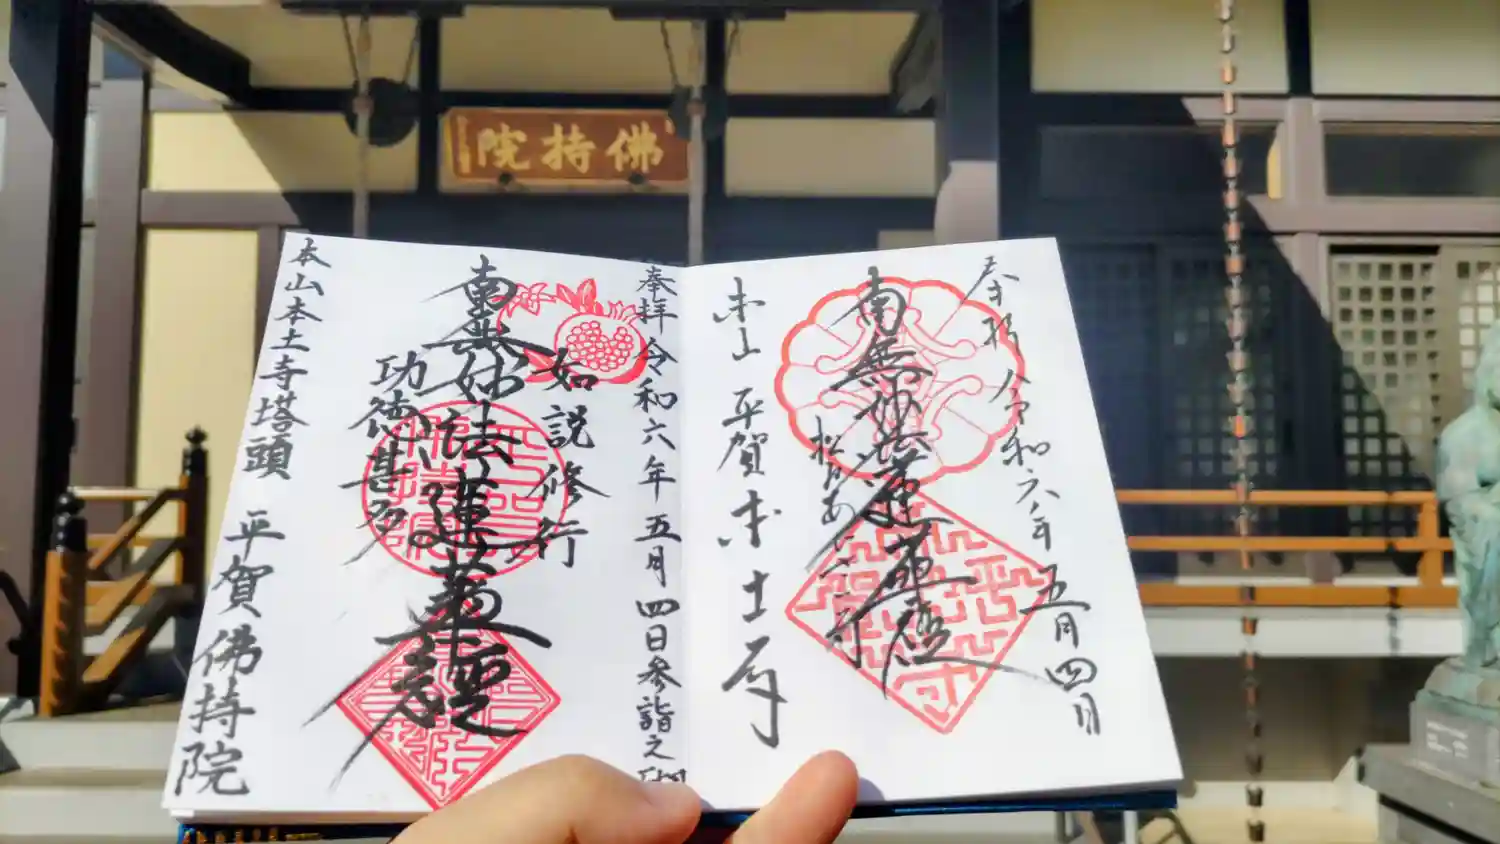 佛持院
奉拝 令和六年 五月四日
南無妙法蓮華経
本山 平賀本土寺
奉拝 令和六年 五月四日参詣之
如説修行
南無妙法蓮華経
功徳甚多
本山本土寺塔頭 平賀佛持院